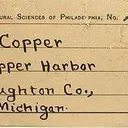 URAL SCIENCES OF PHILADELPHIA, No.
Copper
pper Harbor
ughton Co.,
Michigan.